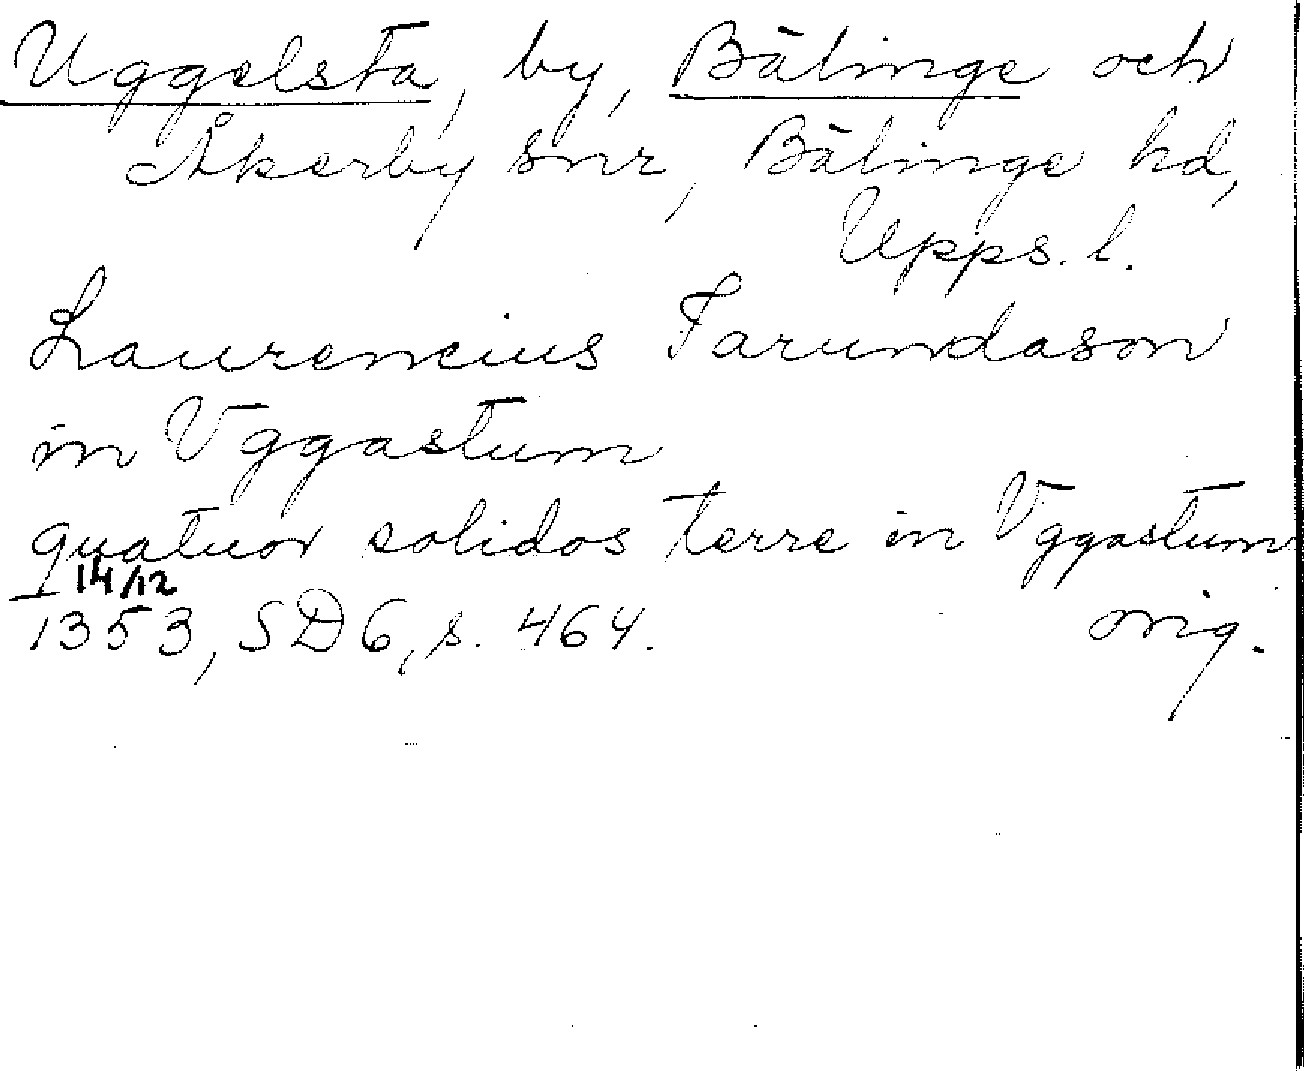 Uggelsta, by, Bälinge och
Åkerby snr, Bälinge hd,
Upps. l.
Laurencius Farundason
in Vggastum
quatuor solidos terre in Vggastum
14/12
1353, SD 6, s. 464. orig.